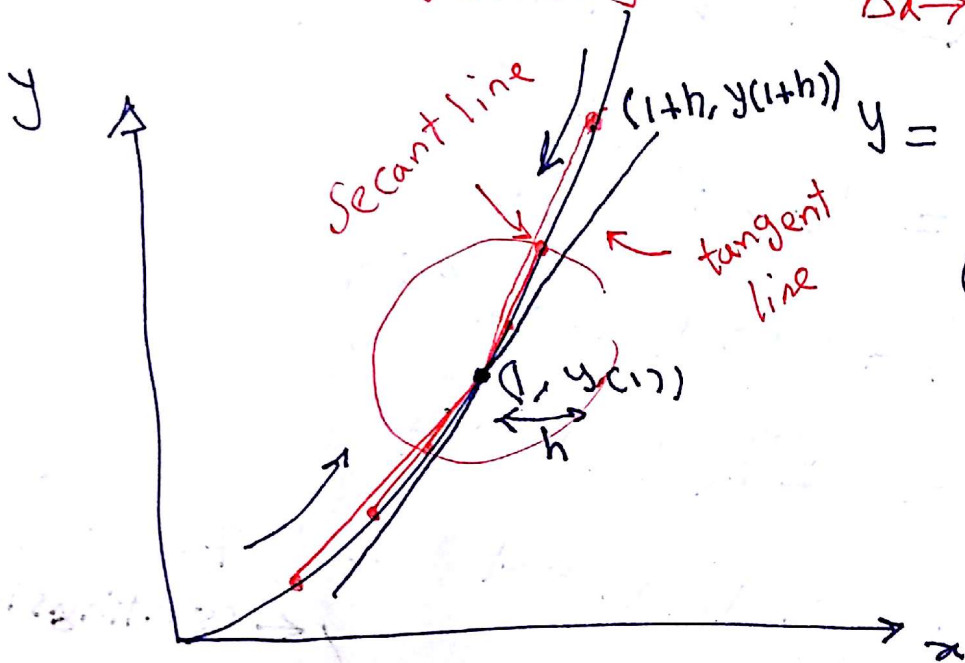 Δx→
y
Secant line
(1+h, y(1+h))
y =
tangent
line
(1, y(1))
h
x